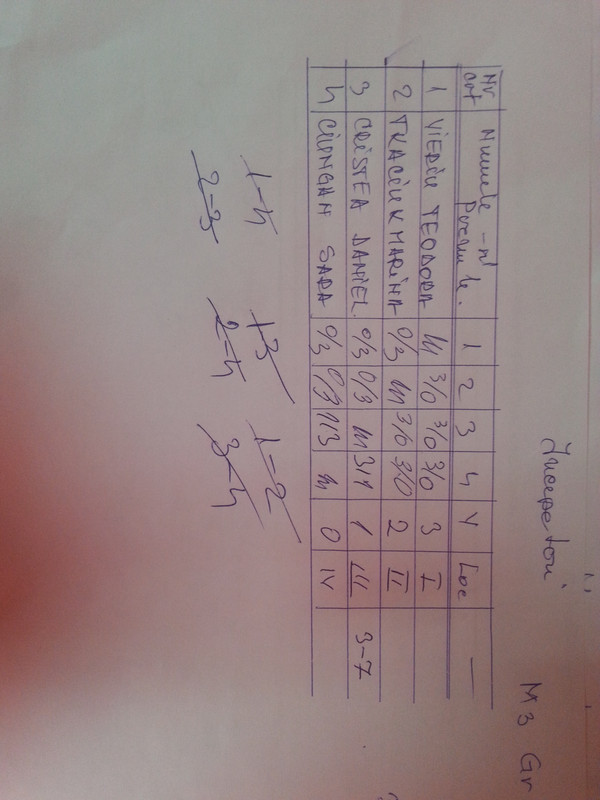 M 3 Gr
Incepatori
Nr Numele - n' 1 2 3 4 V Loc —
cat Prenumele.
1 VIERIU TEODORA m 3/0 3/0 3/0 3 I
2 TKACIUK MARINA 0/3 m 3/0 3/0 2 II
3 CRISTEA DANIEL 0/3 0/3 m 3/1 1 III 3-7
4 CIUNGAN SARA 0/3 0/3 1/3 m 0 IV
1-4 1-3 1-2
2-3 2-4 3-4